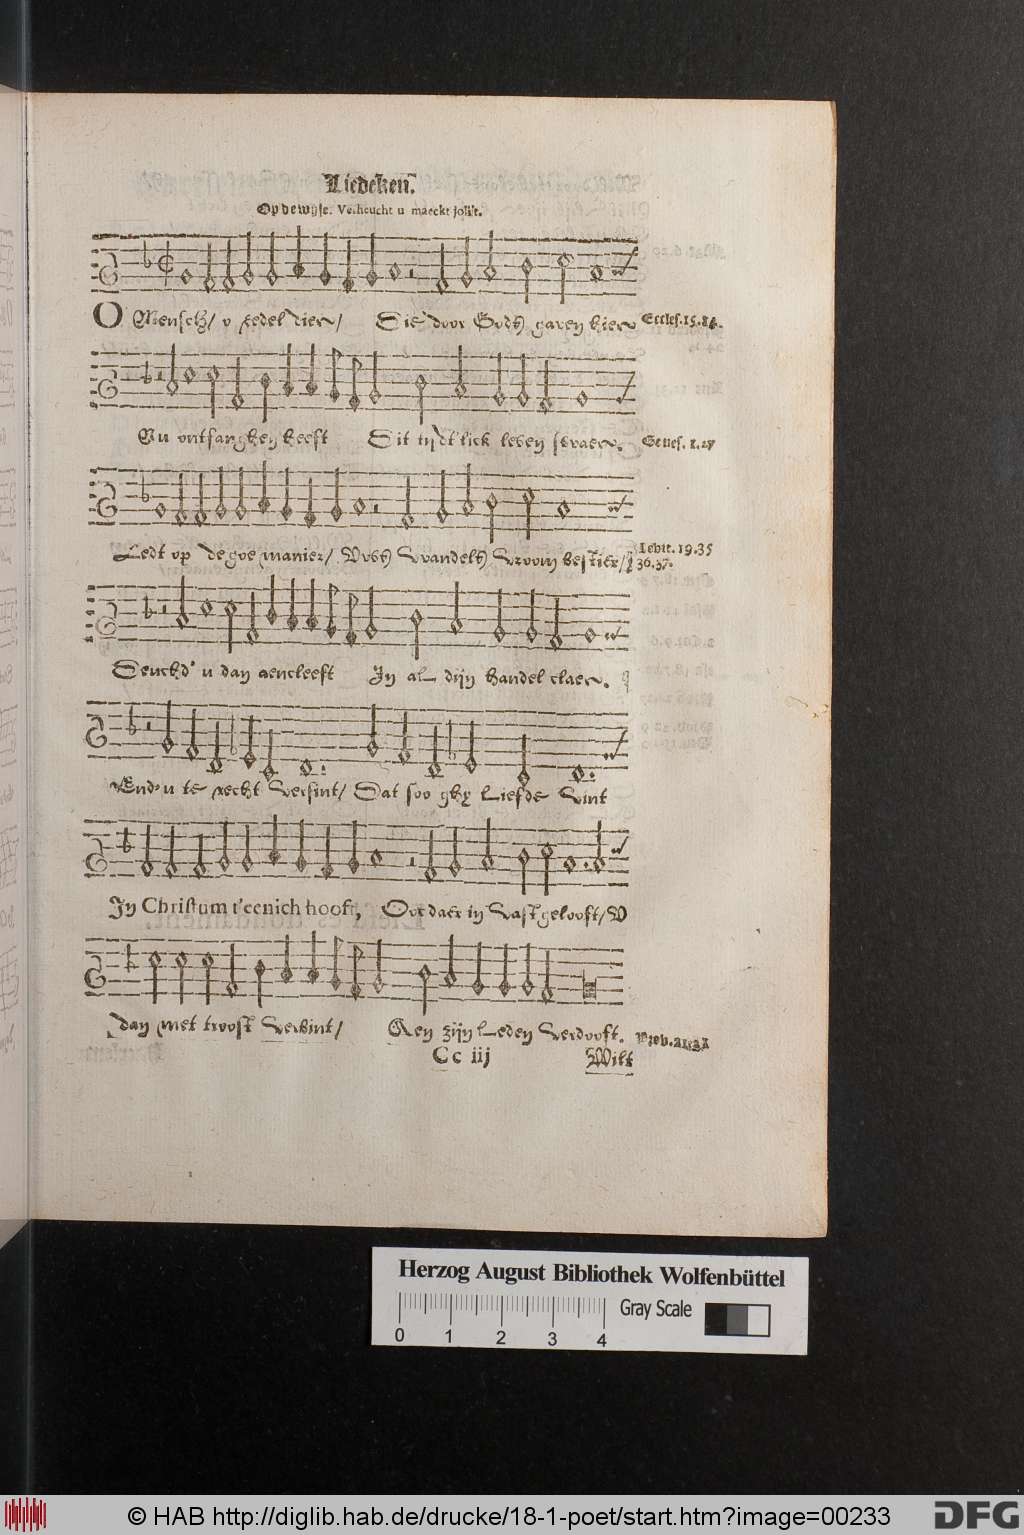 Liedeken.
Op de wijse. Verheucht u maeckt jolijt.
O Mensch/ o reedel dier/ Die door Gods gaven hier Eccles.15.14.
Nu ontfanghen heeft Dit tijdt'lick leven swaer. Genes. 1.27
Ledt op de goe manier/ Levit. 19.35
Vroom bestier/ 36.37.
u dan aencleeft In al dijn handel claer.
End' u te recht versint/ Dat soo ghy Liefde vint
In Christum t'eenich hooft, Oor daer in vast gelooft/ V
dan met troost verbint/ Aen zijn Leden verdooft. Prov.21.31
Cc iij Wilt
Herzog August Bibliothek Wolfenbüttel
Gray Scale
0 1 2 3 4
© HAB http://diglib.hab.de/drucke/18-1-poet/start.htm?image=00233
DFG